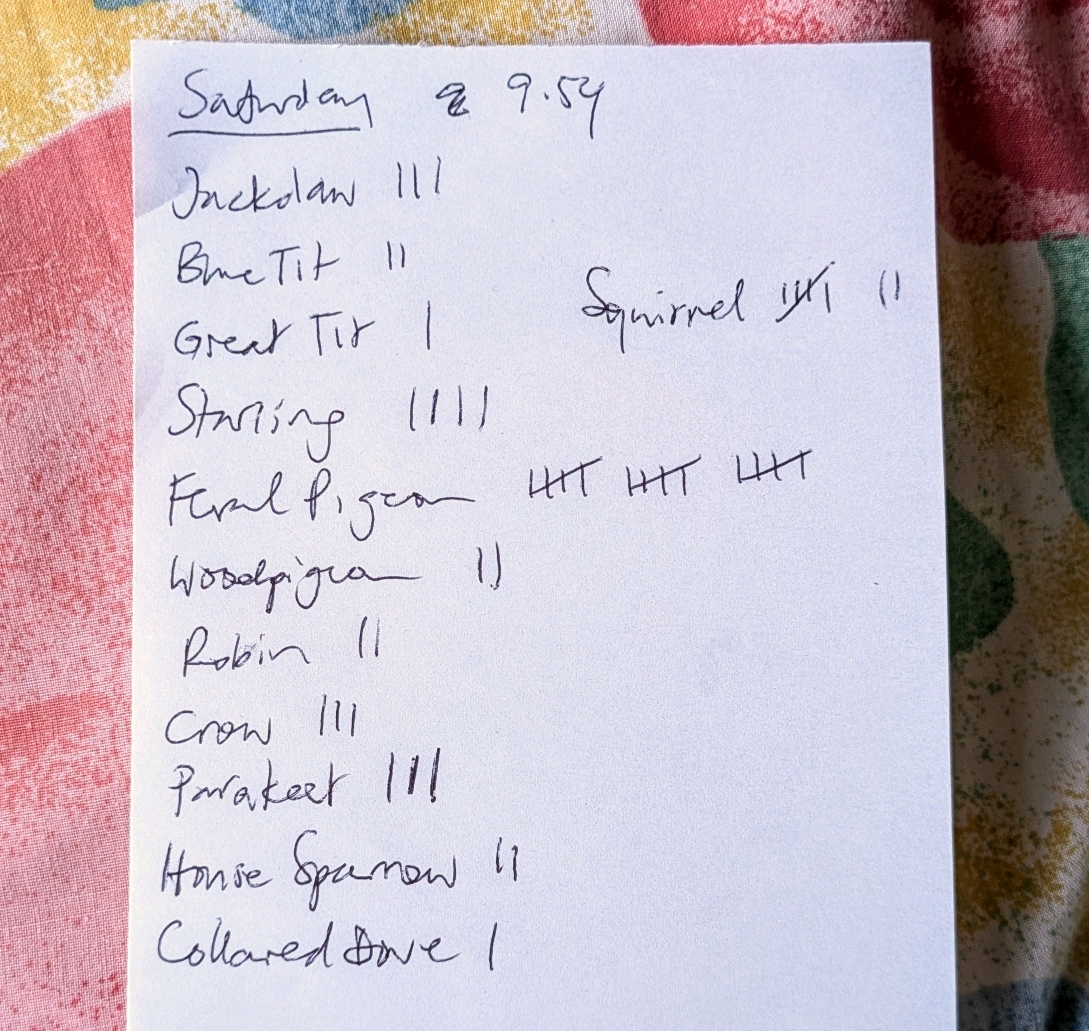 Saturday 9.54
Jackdaw |||
Blue Tit ||
Great Tit |
Squirrel |||| ||
Starling ||||
Feral Pigeon |||| |||| ||||
Woodpigeon ||
Robin ||
Crow |||
Parakeet |||
House Sparrow ||
Collared Dove |